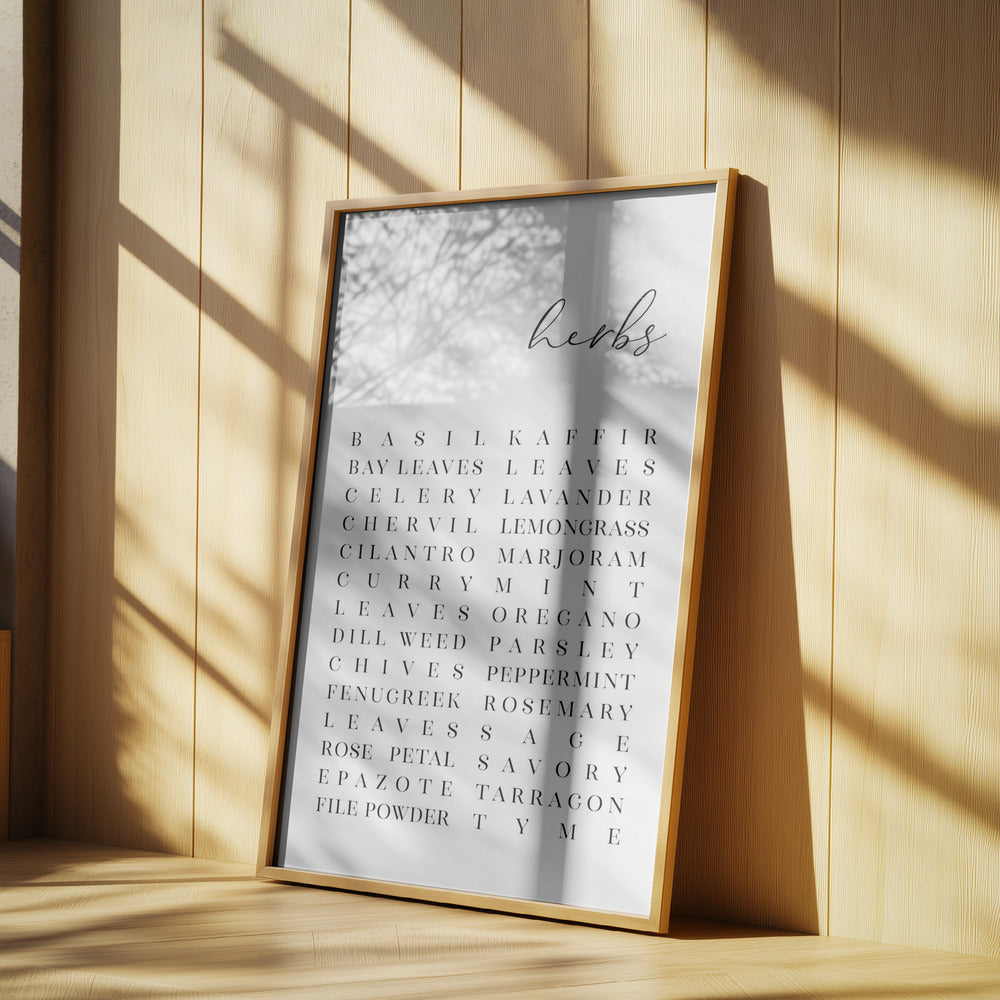 herbs
BASIL
BAY LEAVES
CELERY
CHERVIL
CILANTRO
CURRY
LEAVES
DILL WEED
CHIVES
FENUGREEK
LEAVES
ROSE PETAL
EPAZOTE
FILE POWDER
KAFFIR
LEAVES
LAVANDER
LEMONGRASS
MARJORAM
MINT
OREGANO
PARSLEY
PEPPERMINT
ROSEMARY
SAGE
SAVORY
TARRAGON
TYME